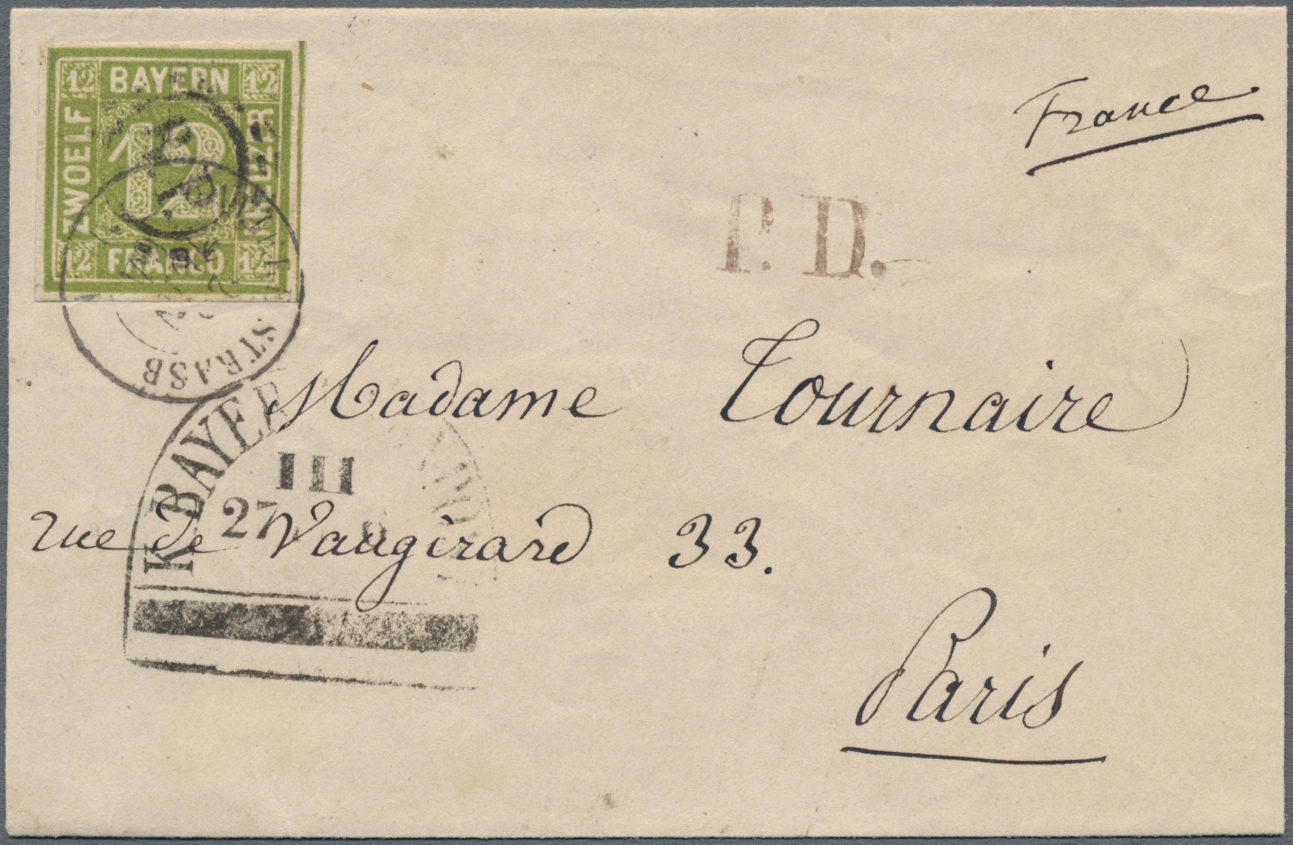 12 BAYERN 12
ZWOELF
12
KREUZER
12 FRANCO 12
France
P. D.
STRASB
Madame Tournaire
K. BAYER
III
27
rue de Vaugirard 33.
Paris